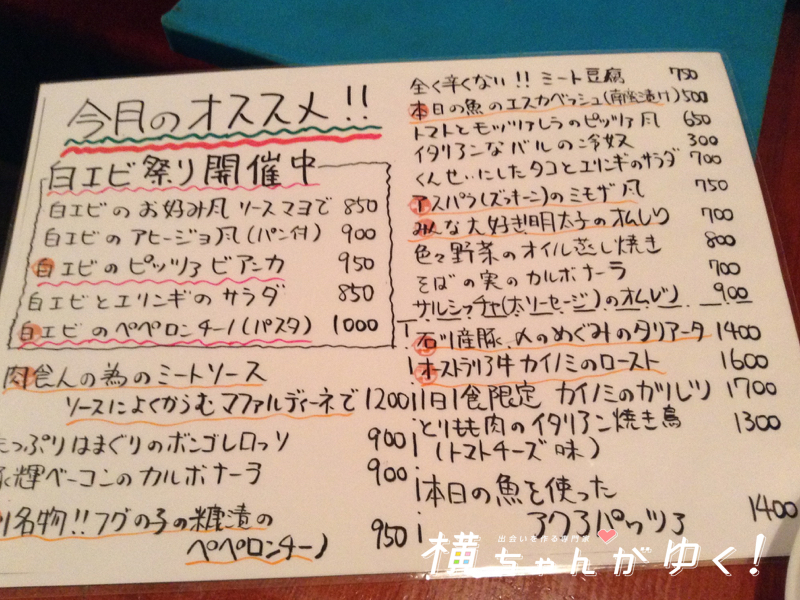 今月のオススメ!!
白エビ祭り開催中
白エビのお好み風ソースマヨで 850
白エビのアヒージョ風(パン付) 900
白エビのピッツァビアンカ 950
白エビとエリンギのサラダ 850
白エビのペペロンチーノ(パスタ) 1000
肉食人の為のミートソース
ソースによくからむマファルディーネで 1200
たっぷりはまぐりのボンゴレロッソ 900
輝ベーコンのカルボナーラ 900
名物!!フグの子の糠漬の
ペペロンチーノ 950
全く辛くない!!ミート豆腐 750
本日の魚のエスカベッシュ(南蛮漬け) 500
トマトとモッツァレラのピッツァ風 650
イタリアンなバルの冷奴 300
くんせいにしたタコとエリンギのサラダ 700
アスパラ(ズッキーニ)のミモザ風 750
みんな大好き明太子のオムレツ 700
色々野菜のオイル蒸し焼き 800
そばの実のカルボナーラ 700
サルシッチャ(太ソーセージ)のオムレツ 900
石川産豚 〆のめぐみのタリアータ 1400
オーストラリア牛カイノミのロースト 1600
1日1食限定 カイノミのカツレツ 1700
とりもも肉のイタリアン焼き鳥 1300
(トマトチーズ味)
本日の魚を使った
アクアパッツァ 1400
出会いを作る専門家
横ちゃんがゆく!